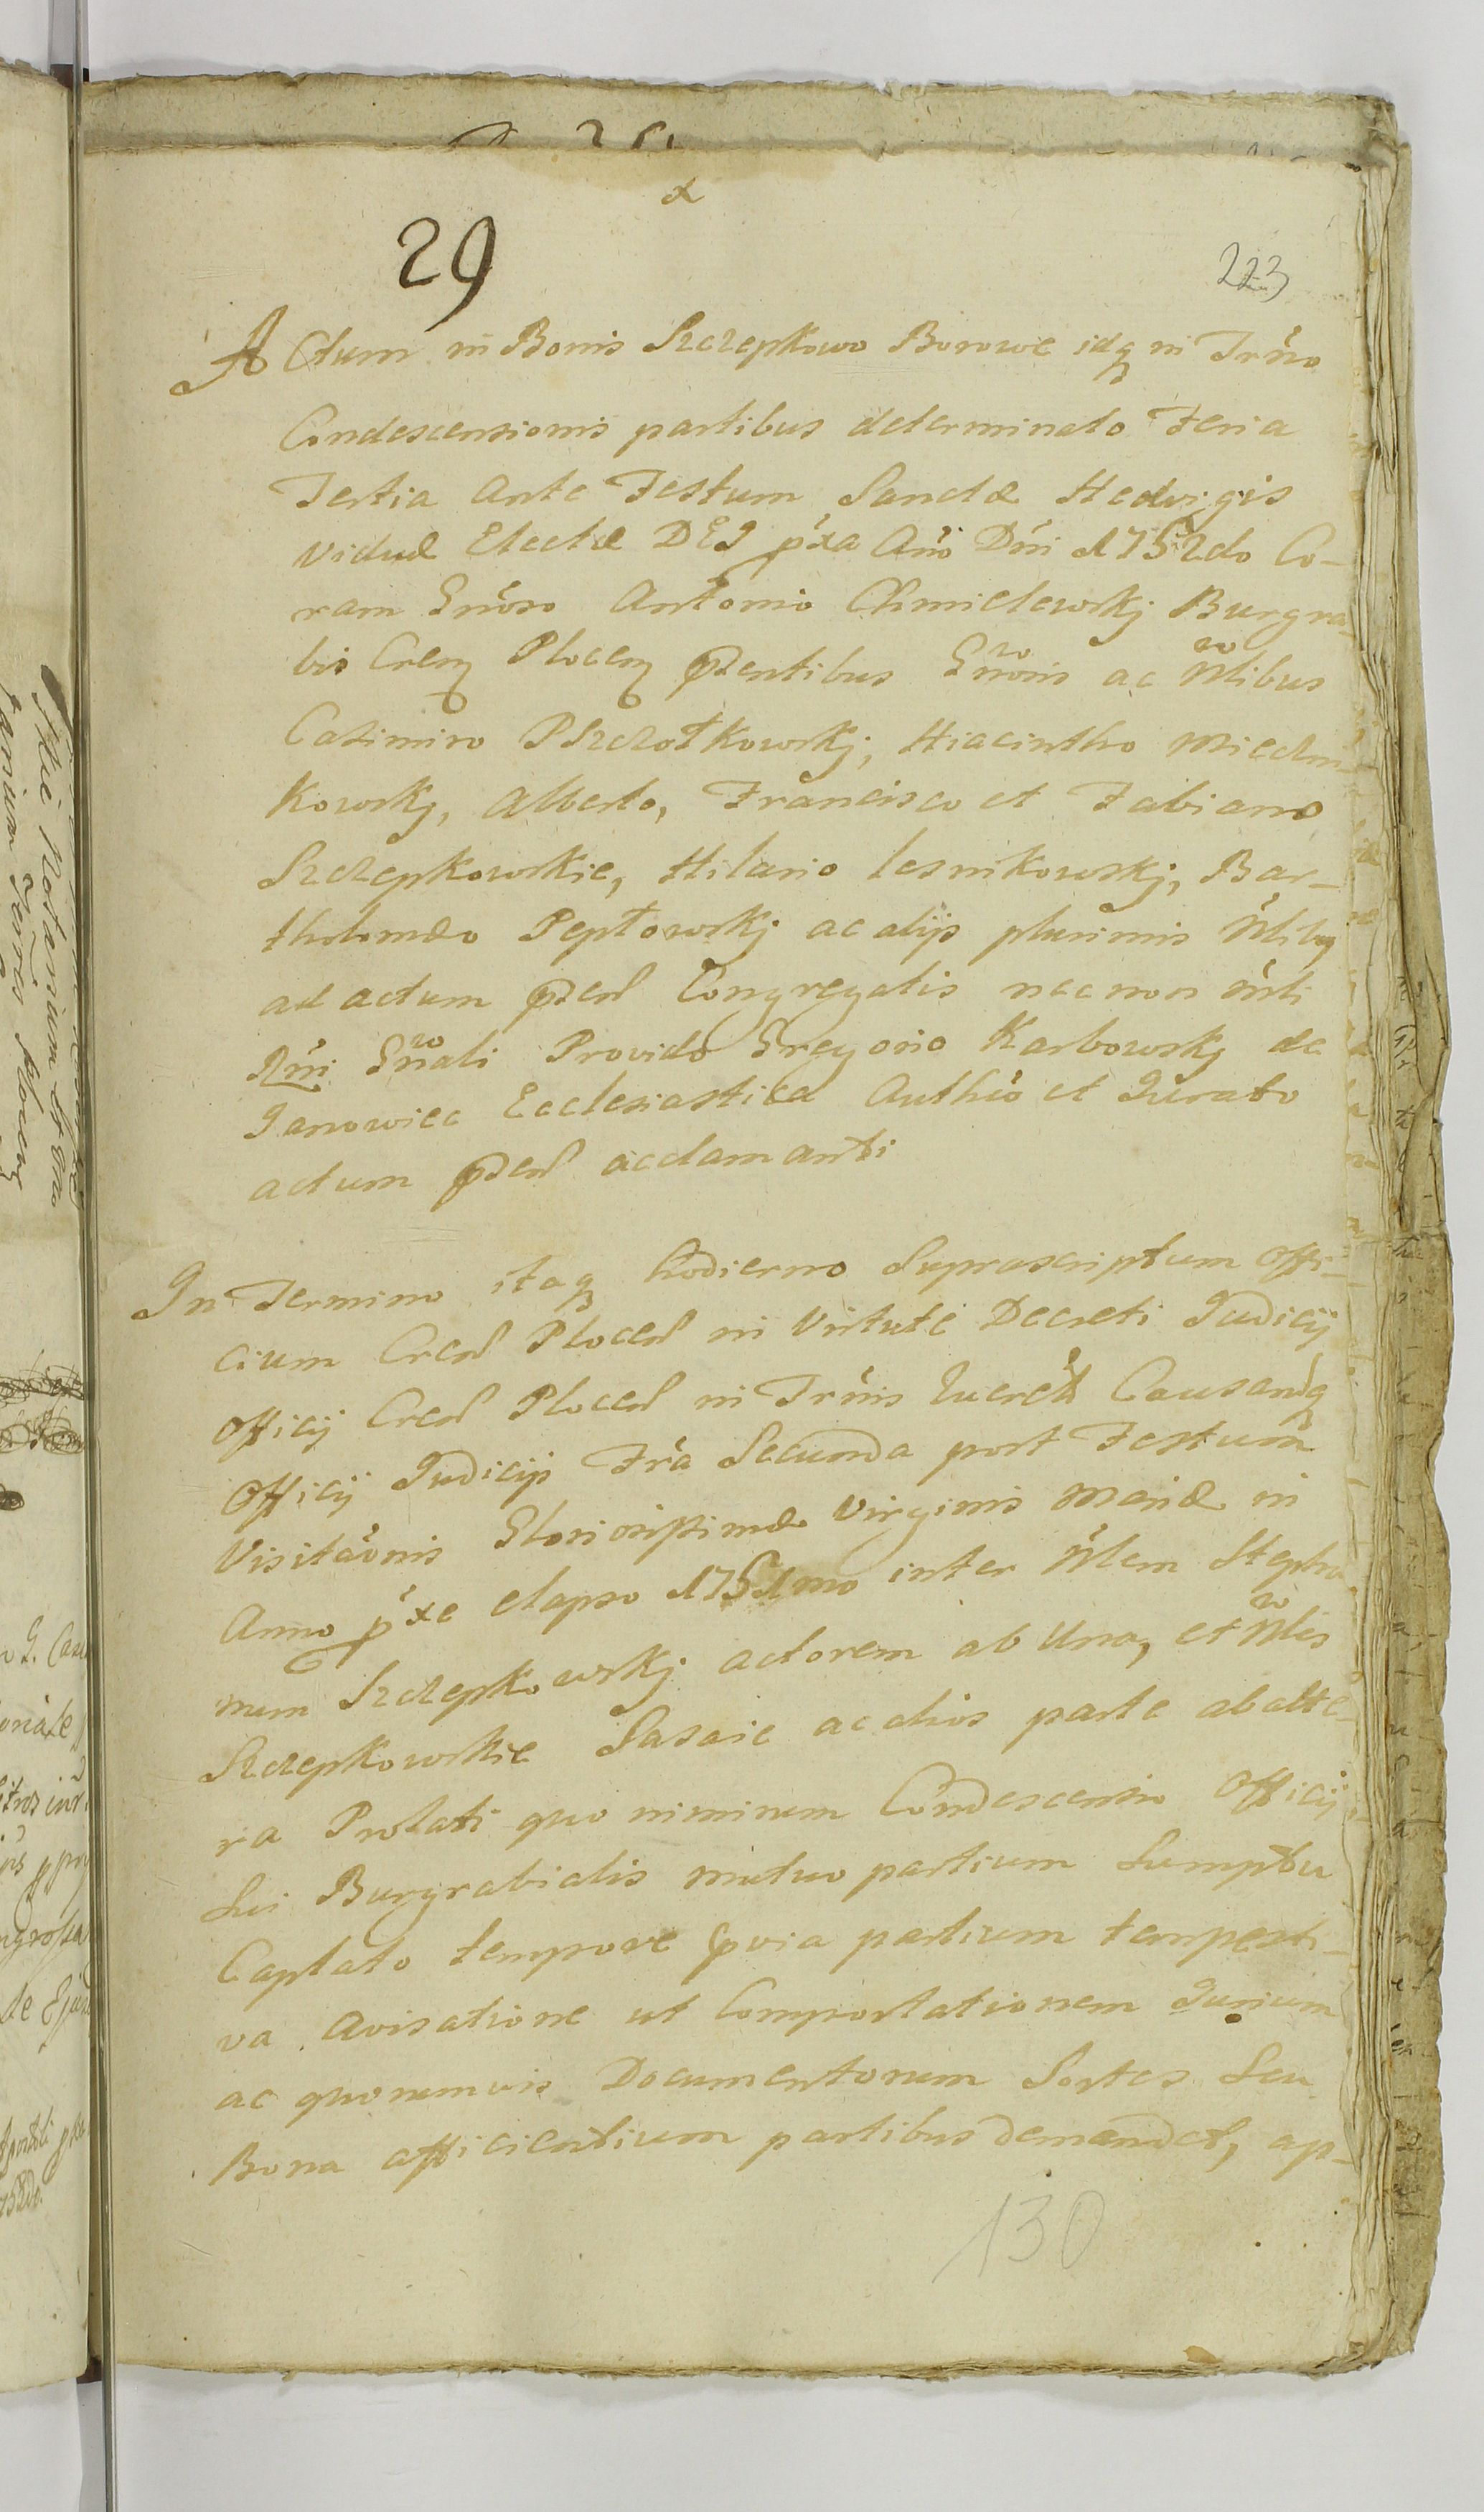 29
223
Actum in Bonis Szczepkowo Borowe idq in Trno
Condescensionis partibus determinato Feria
Tertia Ante Festum Sanctæ Hedvigis
Viduæ Electæ DEI pxa Ano Dni 1752do Co-
ram Gnoso Antonio Chmielewskj Burgra-
bio Cren Plocen Pdentibus Gnosis ac Nlibus
Casimiro PSzczołkowskj, Hiacintho Miecni-
Kowskj, Alberto, Francisco et Fabiano
Szczepkowskie, Hilario Lesnikowskj, Bar-
tholomæo Peptowskj ac alijs plurimis Nlibq
ad actum Pden Congregatis necnon mti
Rni Gnali Provido Gregorio Karbowskj de
Janowiec Ecclesiastica Authco et Jurato
actum Pden acclamanti
In Termino itaq hodierno Suprascriptum Offi-
cium Cren Plocen in Virtute Decreti Judicij
Officij Cren Plocen in Trnis Querel Causarūq
Officij Judicijs Fra Secunda post Festum
Visitaonis Gloriosissimæ Virginis Mariæ in
Anno pxe elapso 1751mo inter Nlem Stepha
num Szczepkowskj actorem ab Una, et Nles
Szczepkowskie Sasaie ac alios parte ab alte-
ra Prolati quo nimirum Condescensio Officij
Sui Burgrabialis mutuo partium Sumptu
Captato tempore prvia partium tempesti-
va Avisatione ut Comportationem Jurium
ac quorumvis Documentorum Sortes Seu
Bona afficientium partibus demandet, ap-
130